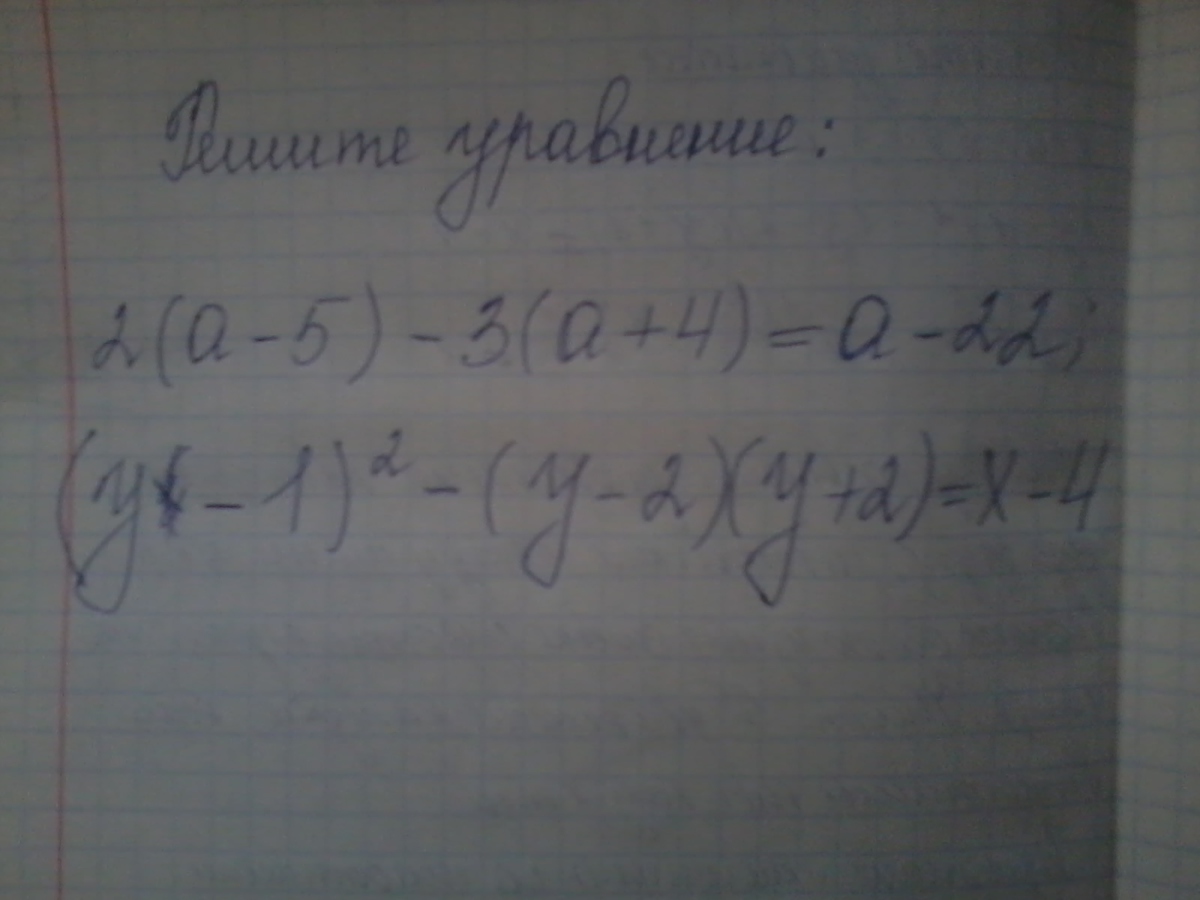 Решите уравнение:
2(a-5)-3(a+4)=a-22;
(y-1)²-(y-2)(y+2)=x-4